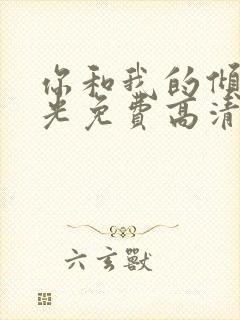 你和我的倾
光免费高清
六玄獸